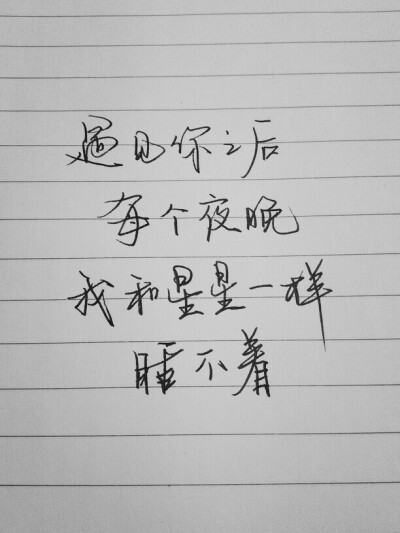 遇见你之后
每个夜晚
我和星星一样
睡不着